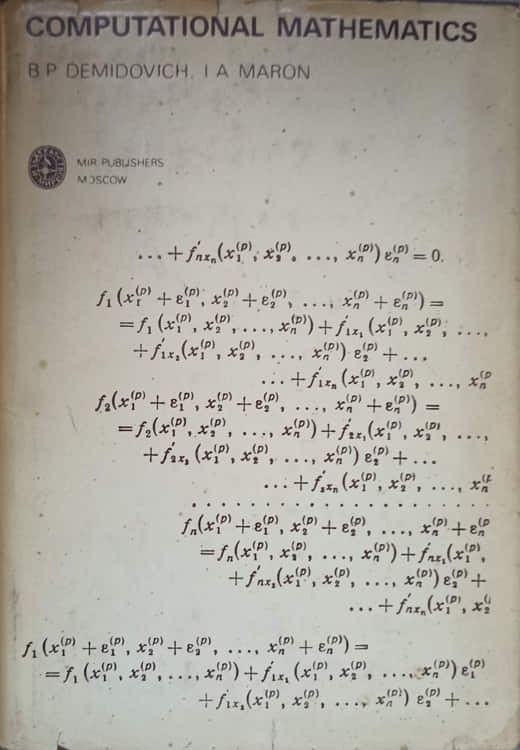 COMPUTATIONAL MATHEMATICS
B P DEMIDOVICH, I A MARON
MIR PUBLISHERS
MOSCOW
... + f′ₙₓₙ(x₁⁽ᵖ⁾, x₂⁽ᵖ⁾, ..., xₙ⁽ᵖ⁾) εₙ⁽ᵖ⁾ = 0.
f₁ (x₁⁽ᵖ⁾ + ε₁⁽ᵖ⁾, x₂⁽ᵖ⁾ + ε₂⁽ᵖ⁾, ..., xₙ⁽ᵖ⁾ + εₙ⁽ᵖ⁾) =
= f₁ (x₁⁽ᵖ⁾, x₂⁽ᵖ⁾, ..., xₙ⁽ᵖ⁾) + f′₁ₓ₁ (x₁⁽ᵖ⁾, x₂⁽ᵖ⁾, ...,
+ f′₁ₓ₂(x₁⁽ᵖ⁾, x₂⁽ᵖ⁾, ..., xₙ⁽ᵖ⁾) ε₂⁽ᵖ⁾ + ...
... + f′₁ₓₙ(x₁⁽ᵖ⁾, x₂⁽ᵖ⁾, ..., xₙ⁽ᵖ
f₂(x₁⁽ᵖ⁾ + ε₁⁽ᵖ⁾, x₂⁽ᵖ⁾ + ε₂⁽ᵖ⁾, ..., xₙ⁽ᵖ⁾ + εₙ⁽ᵖ⁾) =
= f₂(x₁⁽ᵖ⁾, x₂⁽ᵖ⁾, ..., xₙ⁽ᵖ⁾) + f′₂ₓ₁(x₁⁽ᵖ⁾, x₂⁽ᵖ⁾, ...,
+ f′₂ₓ₂ (x₁⁽ᵖ⁾, x₂⁽ᵖ⁾, ..., xₙ⁽ᵖ⁾) ε₂⁽ᵖ⁾ + ...
... + f′₂ₓₙ(x₁⁽ᵖ⁾, x₂⁽ᵖ⁾, ..., xₙ⁽
. . . . . . . . . . . . . . . . . .
fₙ(x₁⁽ᵖ⁾ + ε₁⁽ᵖ⁾, x₂⁽ᵖ⁾ + ε₂⁽ᵖ⁾, ..., xₙ⁽ᵖ⁾ + εₙ⁽ᵖ
= fₙ(x₁⁽ᵖ⁾, x₂⁽ᵖ⁾, ..., xₙ⁽ᵖ⁾) + f′ₙₓ₁(x₁⁽ᵖ⁾,
+ f′ₙₓ₂(x₁⁽ᵖ⁾, x₂⁽ᵖ⁾, ..., xₙ⁽ᵖ⁾) ε₂⁽ᵖ⁾ +
... + f′ₙₓₙ(x₁⁽ᵖ⁾, x₂⁽
f₁ (x₁⁽ᵖ⁾ + ε₁⁽ᵖ⁾, x₂⁽ᵖ⁾ + ε₂⁽ᵖ⁾, ..., xₙ⁽ᵖ⁾ + εₙ⁽ᵖ⁾) =
= f₁ (x₁⁽ᵖ⁾, x₂⁽ᵖ⁾, ..., xₙ⁽ᵖ⁾) + f′₁ₓ₁ (x₁⁽ᵖ⁾, x₂⁽ᵖ⁾, ..., xₙ⁽ᵖ⁾) ε₁⁽ᵖ⁾
+ f′₁ₓ₂(x₁⁽ᵖ⁾, x₂⁽ᵖ⁾, ..., xₙ⁽ᵖ⁾) ε₂⁽ᵖ⁾ + ...